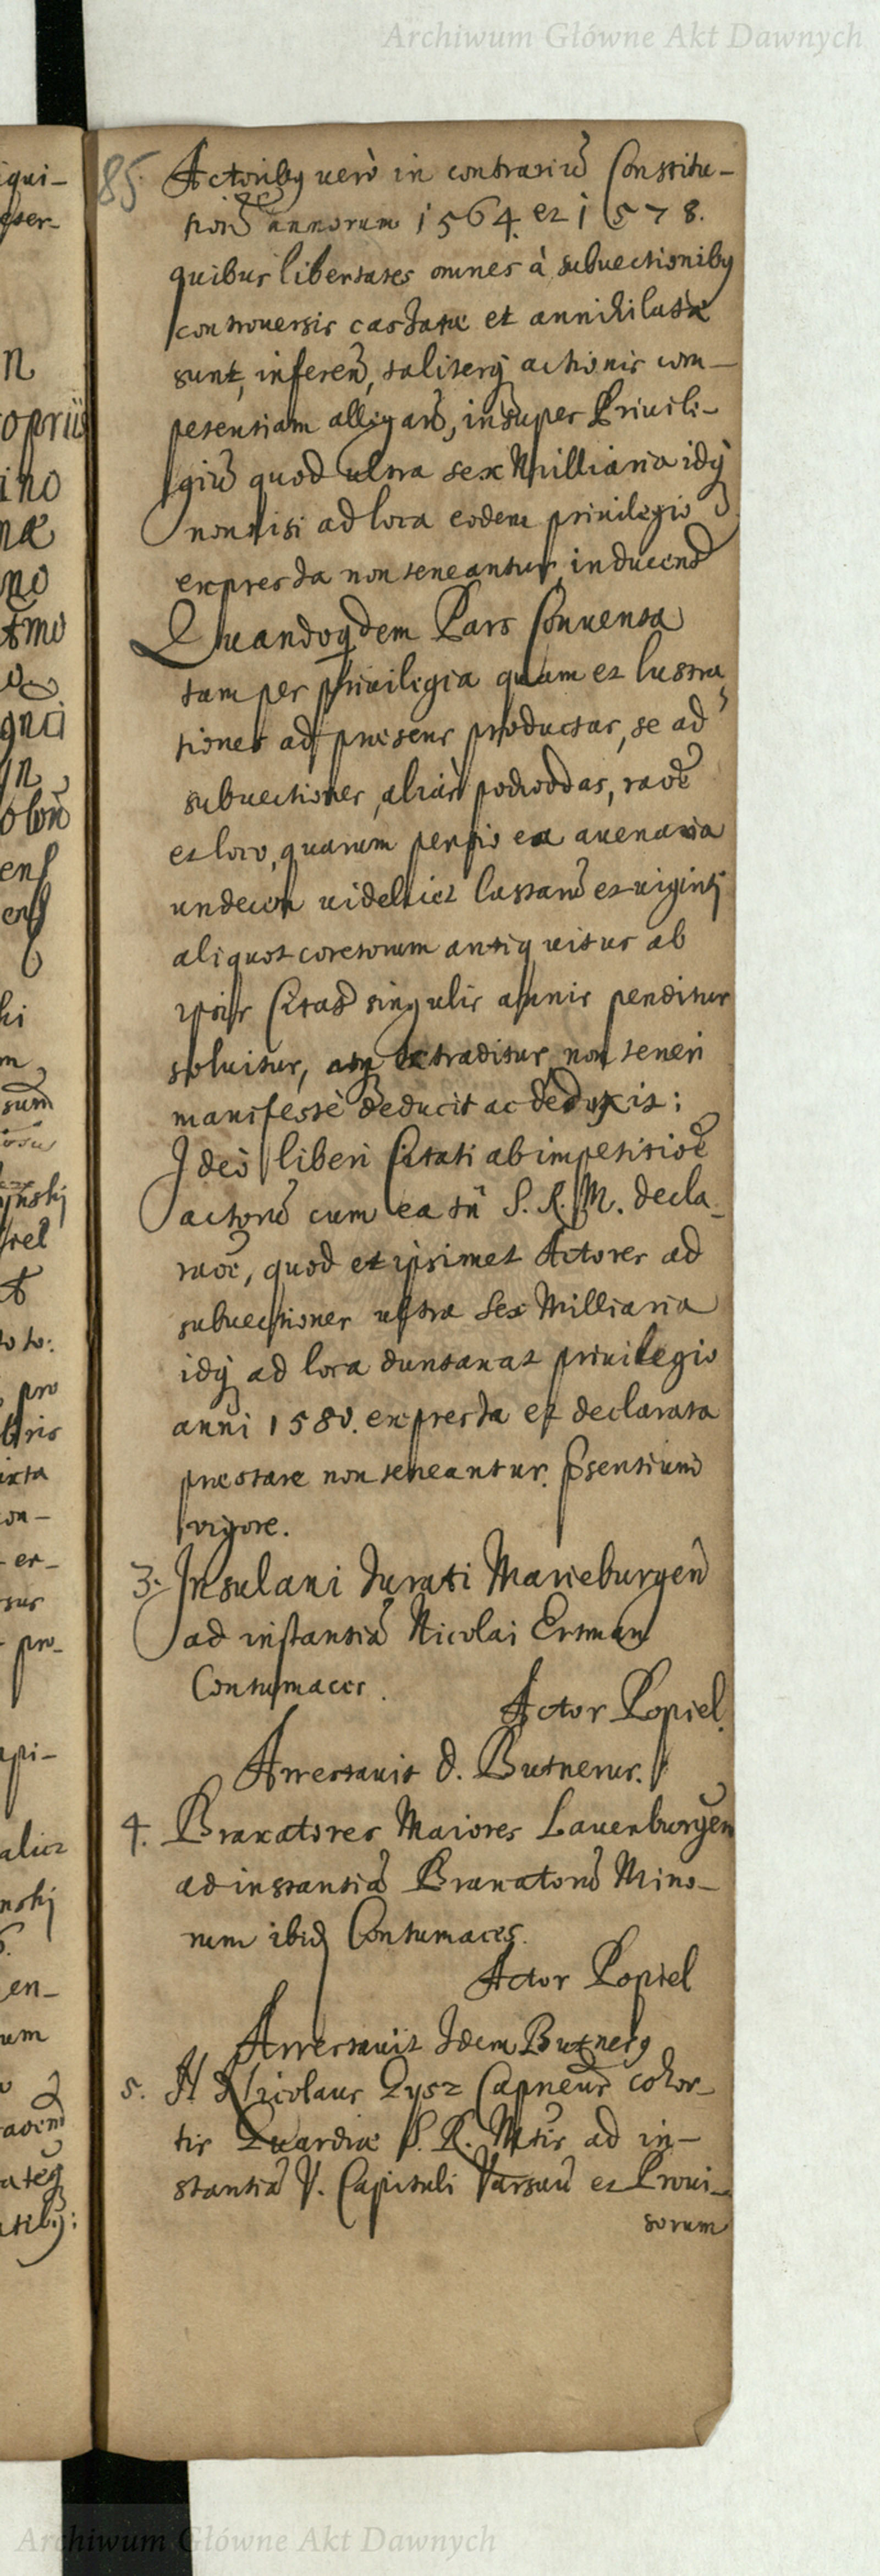 Archiwum Główne Akt Dawnych
85. Actoribq vero in contrariu Constitu-
tion annorum 1564. et 1578.
quibus libertates omnes à subuectionibq
controuersis castatae et annihilatæ
sunt, inferen, taliterq actionis com-
petentiam allegan, insuper Priuile-
giu quod ultra sex Milliaria idq
nonnisi ad loca eodem priuilegio
expressa non teneantur, inducend
Quandoqdem Pars Conuenta
tam per priuilegia quam et lustra
tiones ad præsens productas, se ad
subuectiones, alias podwoddas, raoe
et loco, quarum pensio ea auenaria
undecim videlicet lastaru et viginti
aliquot coretorum antiquitus ab
ipsis Citat singulis annis penditur
soluitur, atq extraditur, non teneri
manifestè deducit ac deduxit:
Ideo liberi Citati ab impetitioe
actoru cum ea tn S. R. M. decla-
raoe, quod et ipsimet Actores ad
subuectiones ultra sex Milliaria
idq ad loca duntaxat priuilegio
anni 1580. expressa et declarata
præstare non teneantur. Psentium
vigore.
3. Insulani Jurati Marieburgen
ad instantia Nicolai Ertman
Contumaces.
Actor Popiel.
Arrestauit d. Butnerus.
4. Braxatores Maiores Lauenburgen
ad instantia Braxatoru Mino-
rum ibid Contumaces.
Actor Popiel
Arrestauit Idem Butnerq
5. Nicolaus Zysz Capneus cohor-
tis Quardiæ S. R. Mtis ad in-
stantia V. Capituli Varsau et Proui-
sorum
Archiwum Główne Akt Dawnych